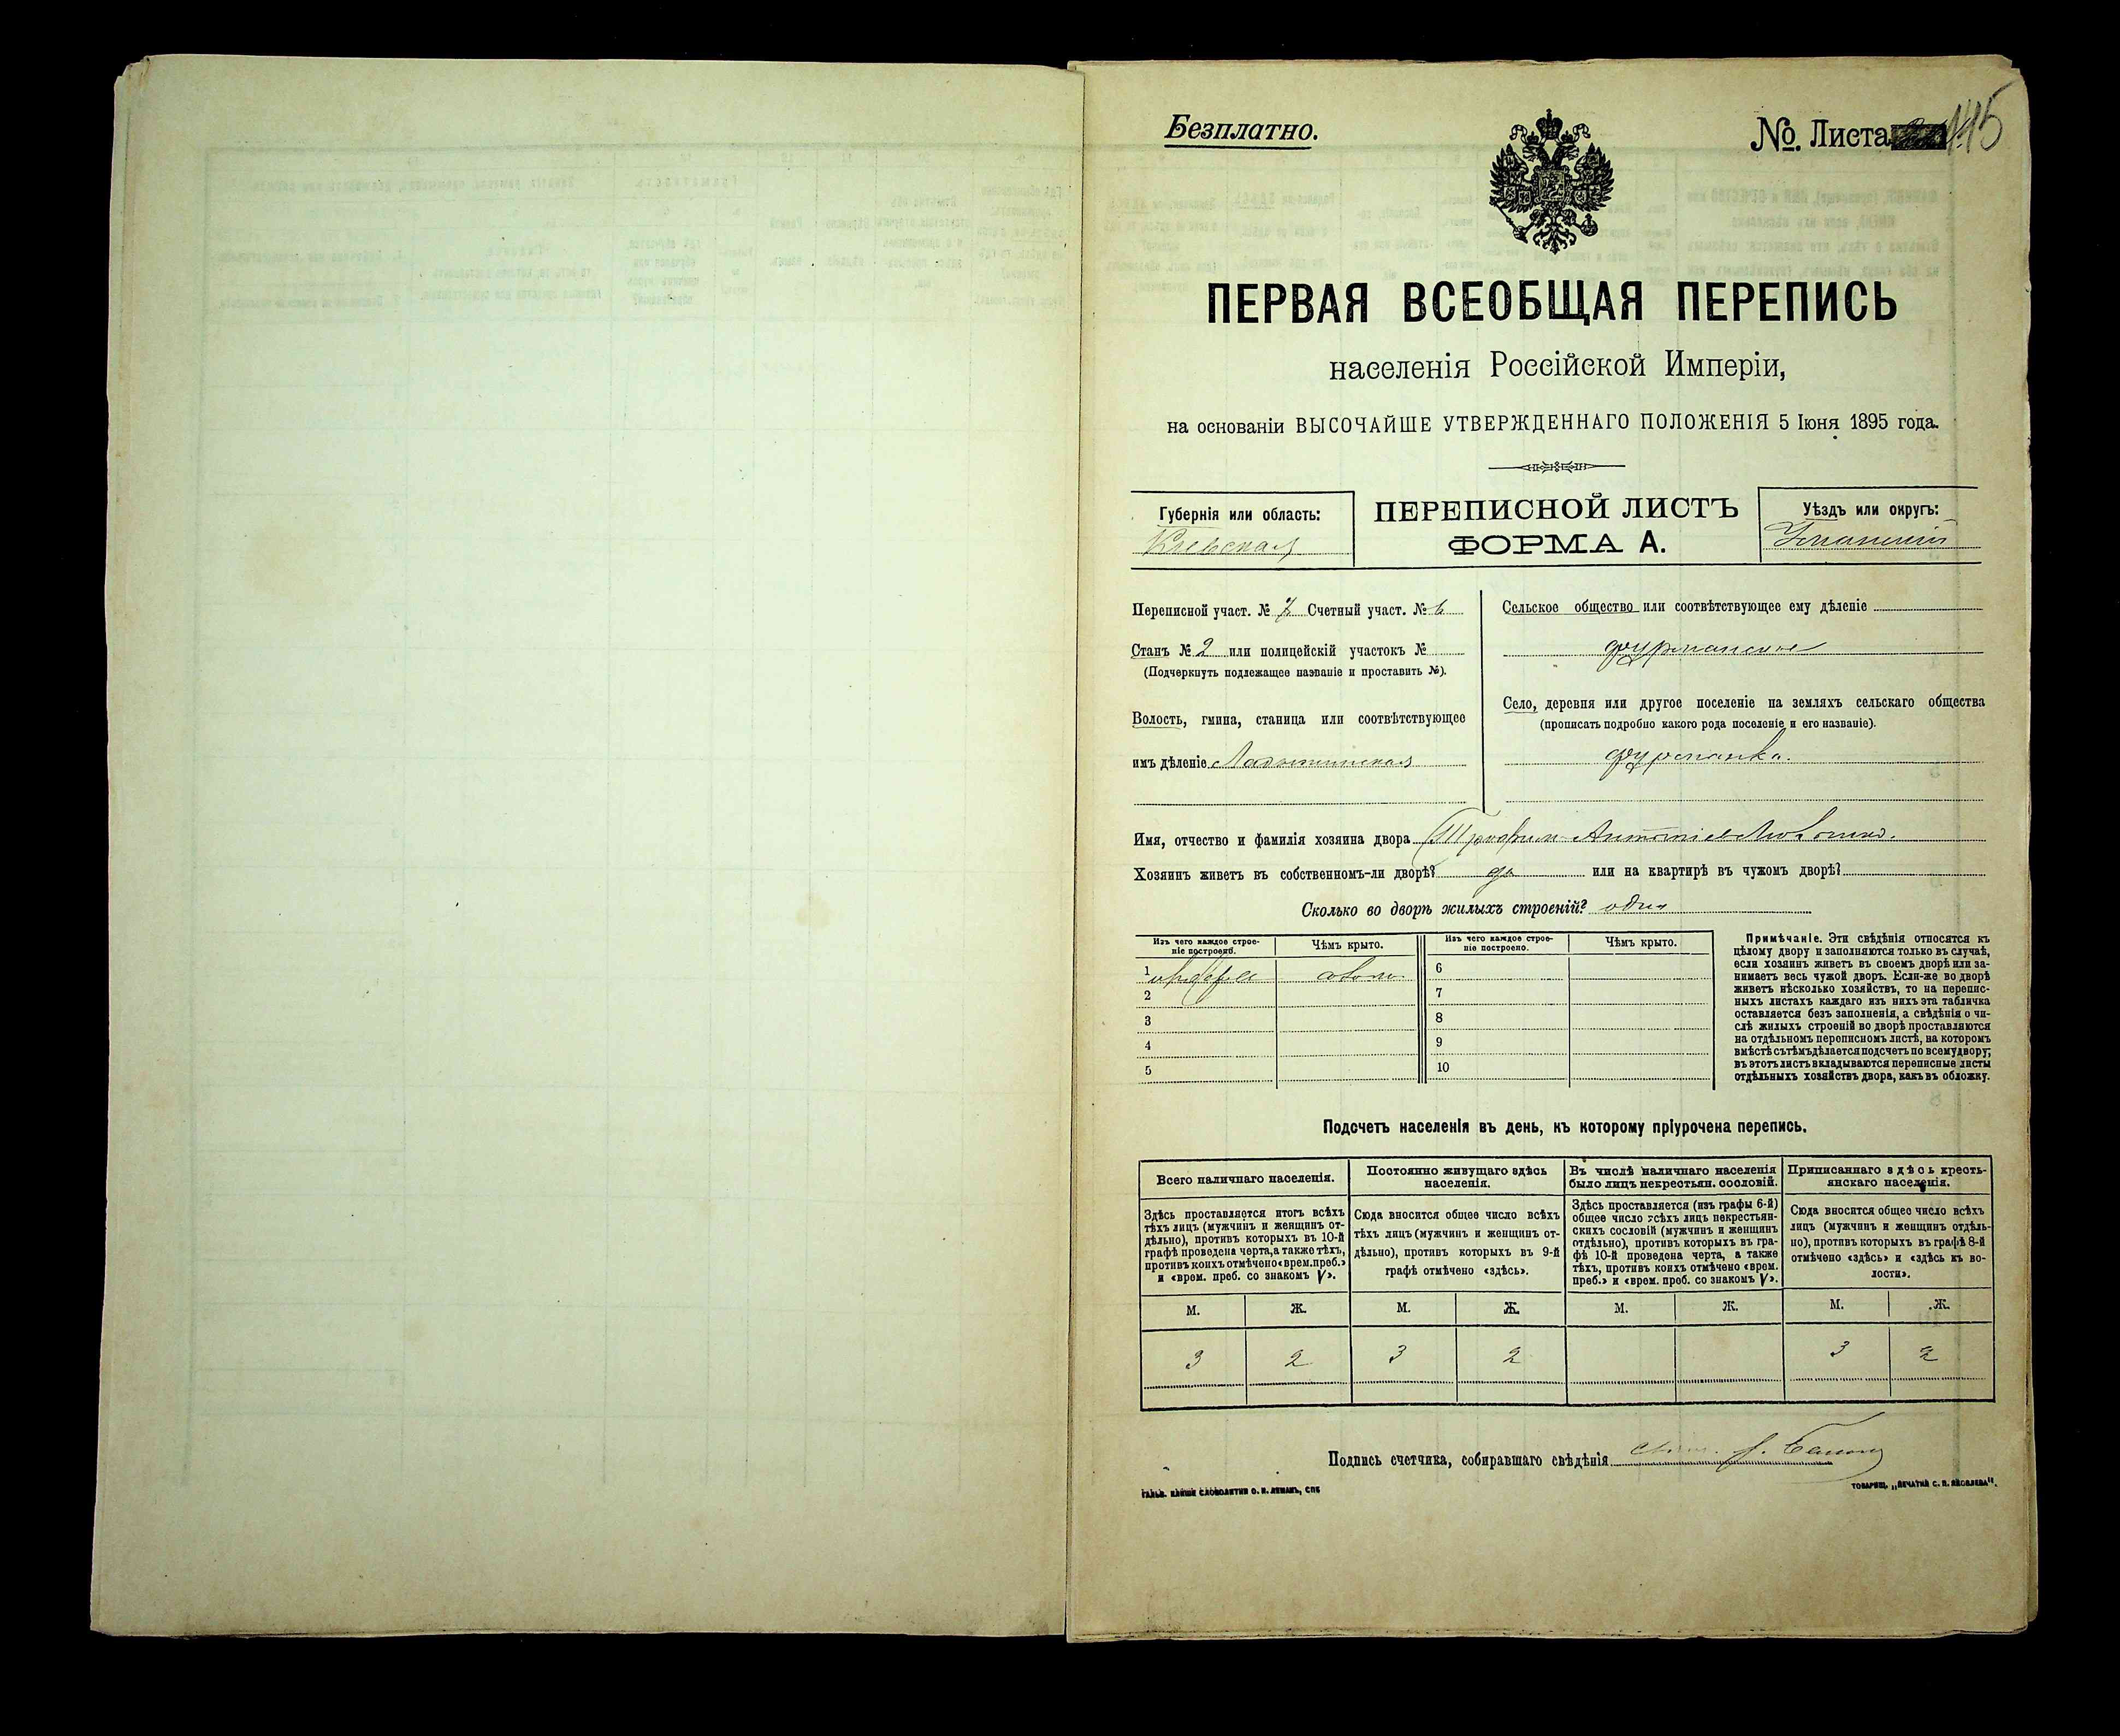 Безплатно.
№. Листа 115
ПЕРВАЯ ВСЕОБЩАЯ ПЕРЕПИСЬ
населенія Россійской Имперіи,
на основаніи ВЫСОЧАЙШЕ УТВЕРЖДЕННАГО ПОЛОЖЕНІЯ 5 Іюня 1895 года.
Губернія или область:
Кіевская
ПЕРЕПИСНОЙ ЛИСТЪ
ФОРМА А.
Уѣздъ или округъ:
Уманскій
Переписной участ. № 7 Счетный участ. № 6
Станъ № 2 или полицейскій участокъ №
(Подчеркнуть подлежащее названіе и проставить №).
Волость, гмина, станица или соотвѣтствующее
имъ дѣленіе Ладыжинская
Сельское общество или соотвѣтствующее ему дѣленіе
фурманское
Село, деревня или другое поселеніе на земляхъ сельскаго общества
(прописать подробно какого рода поселеніе и его названіе).
фурманка.
Имя, отчество и фамилія хозяина двора Трофим Антоніев
Хозяинъ живетъ въ собственномъ-ли дворѣ? да или на квартирѣ въ чужомъ дворѣ?
Сколько во дворѣ жилыхъ строеній? один
Изъ чего каждое строе-
ніе построено.
Чѣмъ крыто.
Изъ чего каждое строе-
ніе построено.
Чѣмъ крыто.
1
2
3
4
5
6
7
8
9
10
Примѣчаніе. Эти свѣдѣнія относятся къ
цѣлому двору и заполняются только въ случаѣ,
если хозяинъ живетъ въ своемъ дворѣ или за-
нимаетъ весь чужой дворъ. Если-же во дворѣ
живетъ нѣсколько хозяйствъ, то на перепис-
ныхъ листахъ каждаго изъ нихъ эта табличка
оставляется безъ заполненія, а свѣдѣнія о чи-
слѣ жилыхъ строеній во дворѣ проставляются
на отдѣльномъ переписномъ листѣ, на которомъ
вмѣстѣ съ тѣмъ дѣлается подсчетъ по всему двору;
въ этотъ листъ вкладываются переписные листы
отдѣльныхъ хозяйствъ двора, какъ въ обложку.
Подсчетъ населенія въ день, къ которому пріурочена перепись.
Всего наличнаго населенія.
Здѣсь проставляется итогъ всѣхъ
тѣхъ лицъ (мужчинъ и женщинъ от-
дѣльно), противъ которыхъ въ 10-й
графѣ проведена черта, а также тѣхъ,
противъ коихъ отмѣчено «врем. преб.»
и «врем. преб. со знакомъ V».
Постоянно живущаго здѣсь
населенія.
Сюда вносится общее число всѣхъ
тѣхъ лицъ (мужчинъ и женщинъ от-
дѣльно), противъ которыхъ въ 9-й
графѣ отмѣчено «здѣсь».
Въ числѣ наличнаго населенія
было лицъ некрестьян. сословій.
Здѣсь проставляется (изъ графы 6-й)
общее число всѣхъ лицъ некрестьян-
скихъ сословій (мужчинъ и женщинъ
отдѣльно), противъ которыхъ въ гра-
фѣ 10-й проведена черта, а также
тѣхъ, противъ коихъ отмѣчено «врем.
преб.» и «врем. преб. со знакомъ V».
Приписаннаго здѣсь кресть-
янскаго населенія.
Сюда вносится общее число всѣхъ
лицъ (мужчинъ и женщинъ отдѣль-
но), противъ которыхъ въ графѣ 8-й
отмѣчено «здѣсь» и «здѣсь въ во-
лости».
М. Ж. М. Ж. М. Ж. М. Ж.
3 2 3 2 3 2
Подпись счетчика, собиравшаго свѣдѣнія
ГАЛЬВ. КЛИШЕ СЛОВОЛИТНИ О. И. ЛЕМАНЪ, СПБ
ТОВАРИЩ. „ПЕЧАТНЯ С. П. ЯКОВЛЕВА".